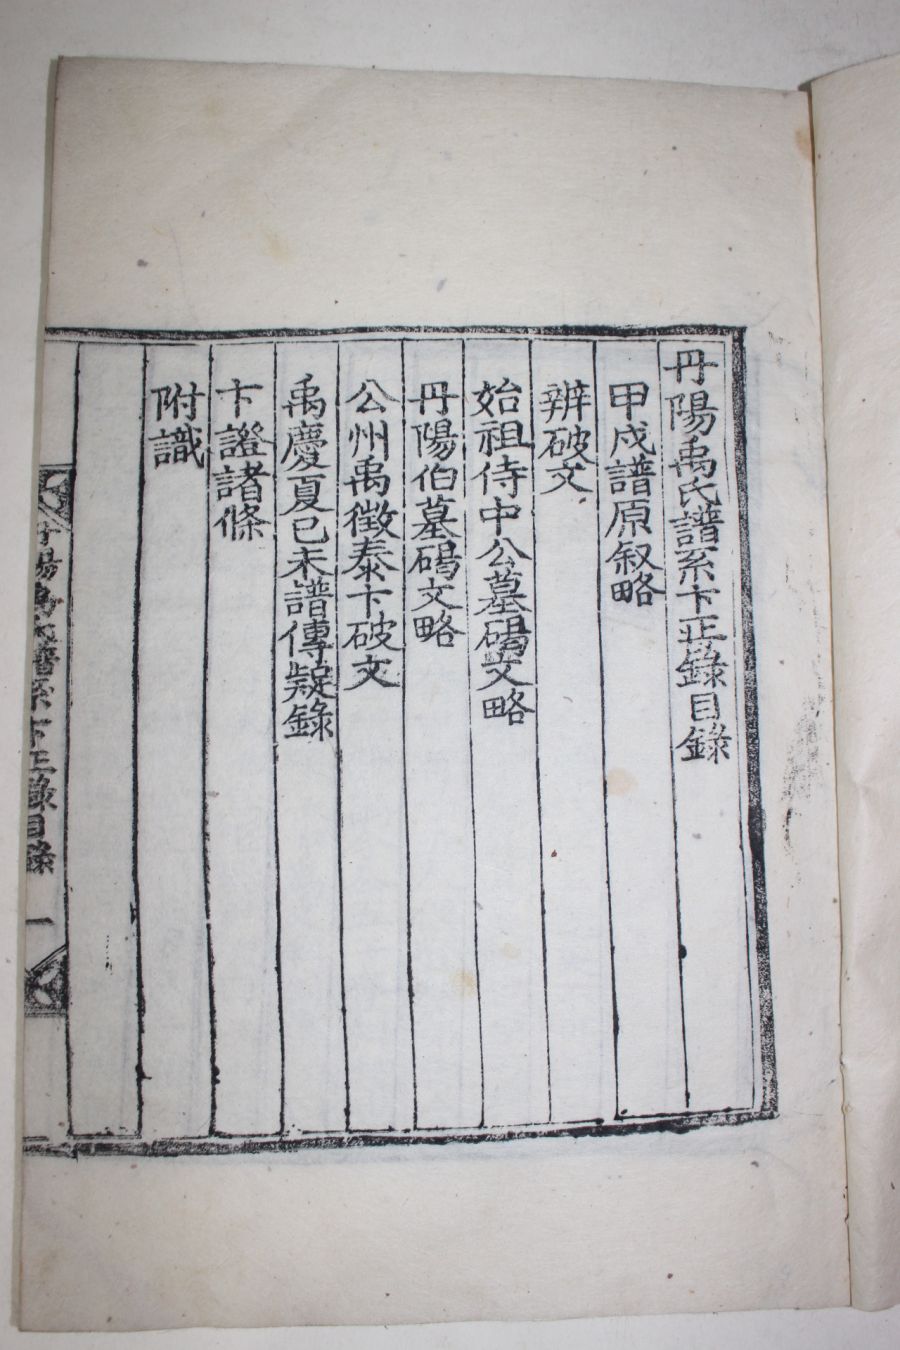 丹陽禹氏譜系卞正錄目錄
甲戍譜原叙略
辨破文
始祖侍中公墓碣文略
丹陽伯墓碣文略
公州禹徵泰卞破文
禹慶夏已未譜傳疑錄
卞證諸條
附識
丹陽禹氏譜系卞正錄目錄 一